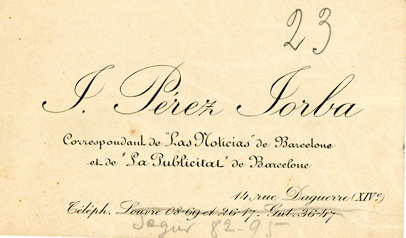 23
J. Pérez Jorba
Correspondant de "Las Noticias" de Barcelone
et de "La Publicitat" de Barcelone
14, rue Daguerre (XIVe)
Téléph. Louvre 08-69 et 26-17. Gut. 36-47
Segur 82-95